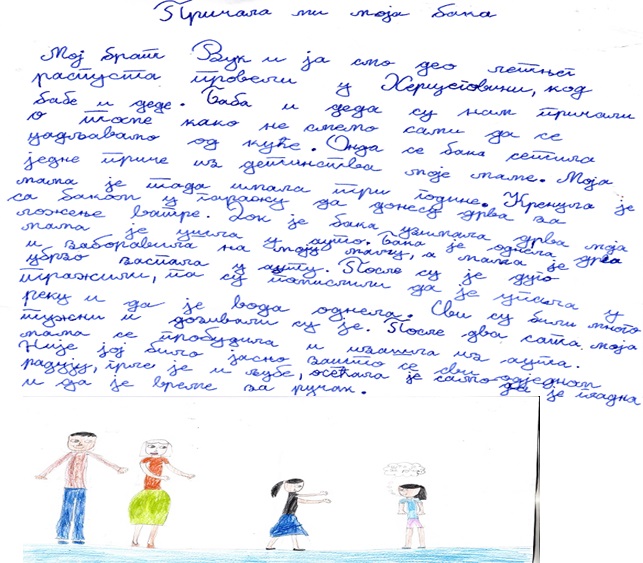 Причала ми моја бака
Мој брат Вук и ја смо део летњег
распуста провели у Херцеговини, код
бабе и деде. Баба и деда су нам причали
о томе како не смемо сами да се
удаљавамо од куће. Онда се бака сетила
једне приче из детинства моје маме. Моја
мама је тада имала три године. Кренула је
са баком у гаражу да донесу дрва за
ложење ватре. Док је бака узимала дрва моја
мама је ушла у ауто. Бака је однела дрва
и заборавила на моју маму, а мама је
убрзо заспала у ауту. После су је дуго
тражили, па су помислили да је упала у
реку и да је вода однела. Сви су били много
тужни и дозивали су је. После два сата моја
мама се пробудила и изашла из аута.
Није јој било јасно зашто се сви одједном
радују, грле је и љубе, осећала је само да је гладна
и да је време за ручак.